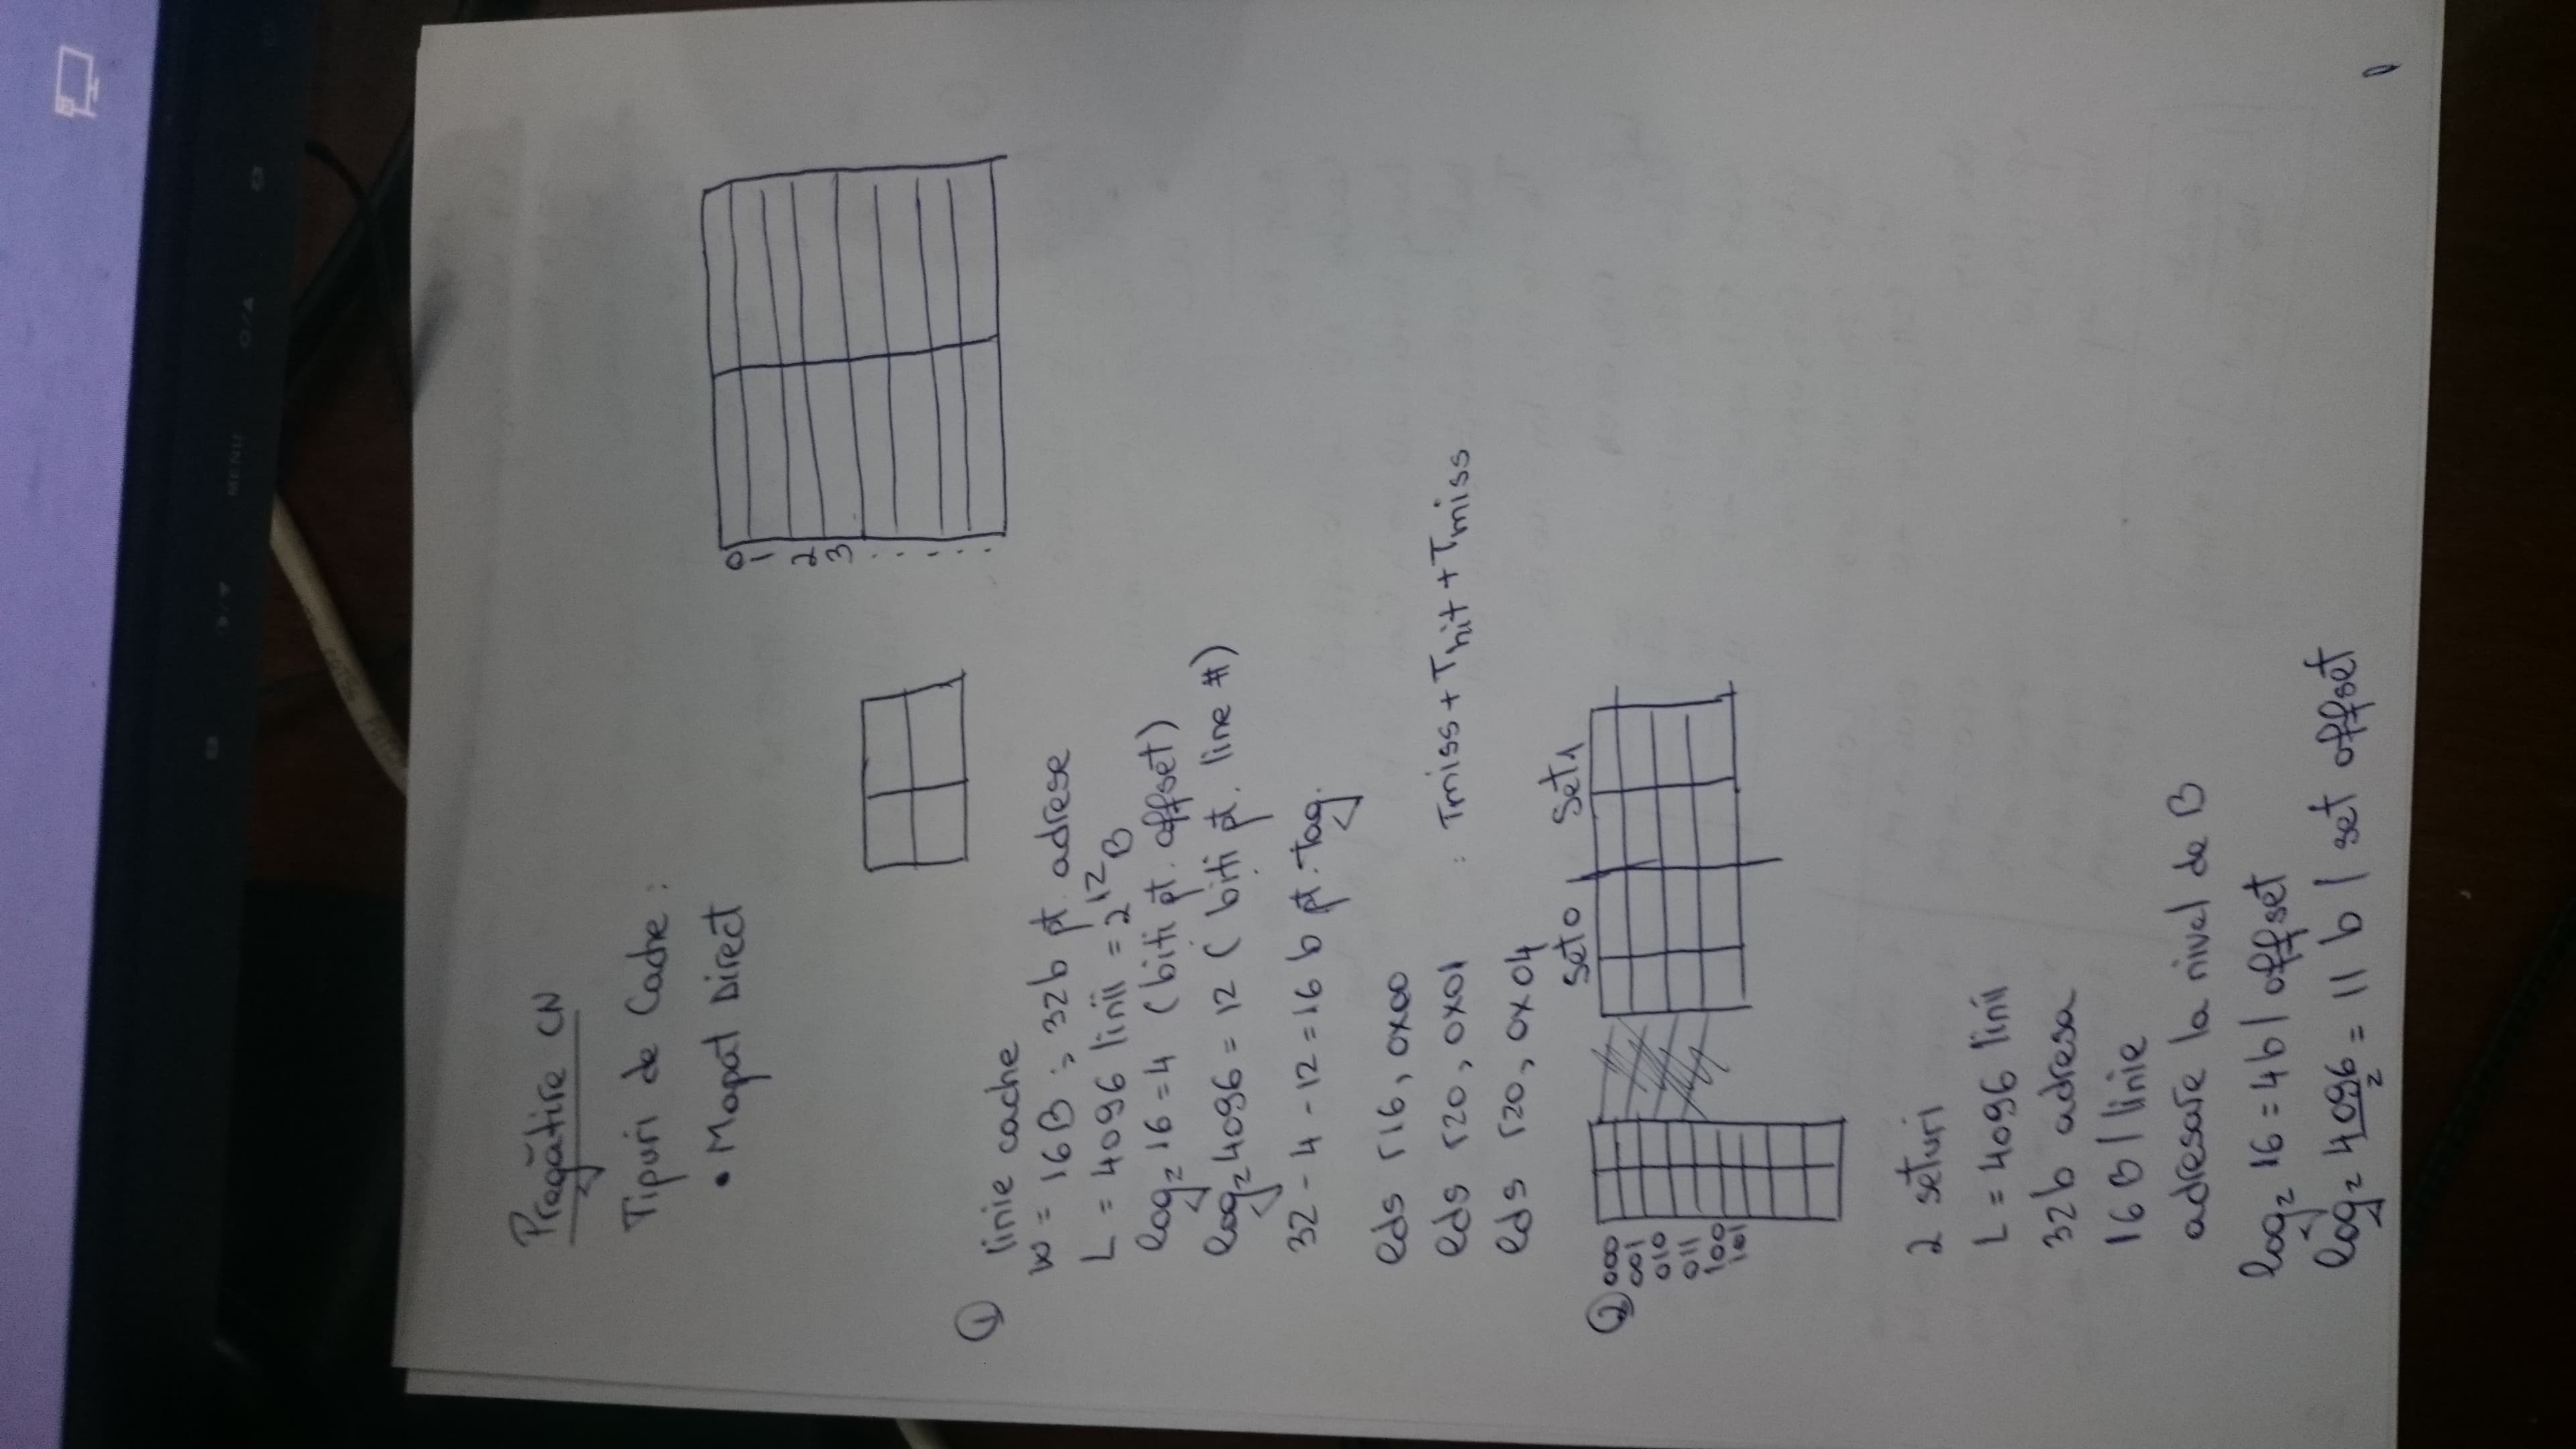 MENU
Pregătire CN
Tipuri de Cache :
• Mapat Direct
0
1
2
3
①
linie cache
w = 16B ; 32b pt. adrese
L = 4096 linii = 2^12 B
log₂ 16 = 4 (biti pt. offset)
log₂ 4096 = 12 ( biti pt. line #)
32 - 4 - 12 = 16 b pt. Tag.
lds r16, 0x00
lds r20, 0x01 : Tmiss + Thit + Tmiss
lds r20, 0x04
②
set0 | Set1
000
001
010
011
100
101
2 seturi
L = 4096 linii
32b adresa
16 B / linie
adresare la nivel de B
log₂ 16 = 4b / offset
log₂ 4096/2 = 11 b / set offset